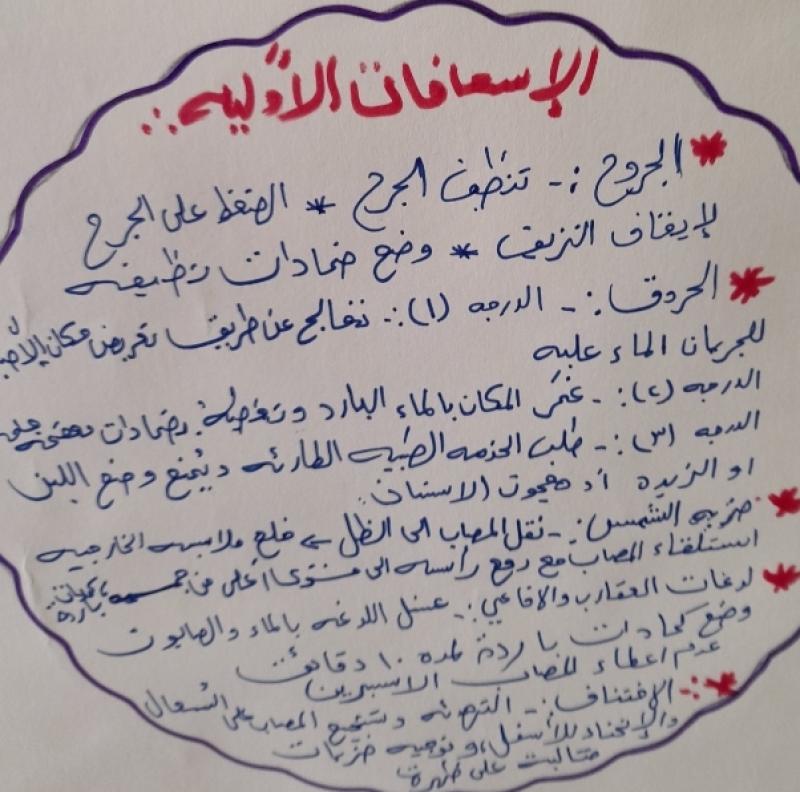 الإسعافات الأوليه :.
* الجروح :- تنظيف الجرح * الضغط على الجرح
لإيقاف النزيف * وضع ضمادات نظيفه
* الحروق :- الدرجه (١) :- تعالج عن طريق تعريض مكان الإصا
لجريان الماء عليه
الدرجه (٢) :- غمر المكان بالماء البارد وتغطيته بضمادات معقمه
الدرجه (٣) :- طلب الخدمه الطبيه الطارئه ويمنع وضع اللبن
او الزبده أو معجون الاسنان.
* ضربه الشمس :- نقل المصاب الى الظل ← خلع ملابسه الخارجيه
استلقاء المصاب مع رفع رأسه الى مستوى اعلى من جسمه بارده
* لدغات العقارب والافاعي :- غسل اللدغه بالماء والصابون
وضع كمادات باردة لمده ١٠ دقائق
عدم اعطاء المصاب الاسبرين
* الإختناق :- التهدئه وتشجيع المصاب على السعال
والإنحناء للأسفل، و توجيه ضربات
متاليت على ظهرة